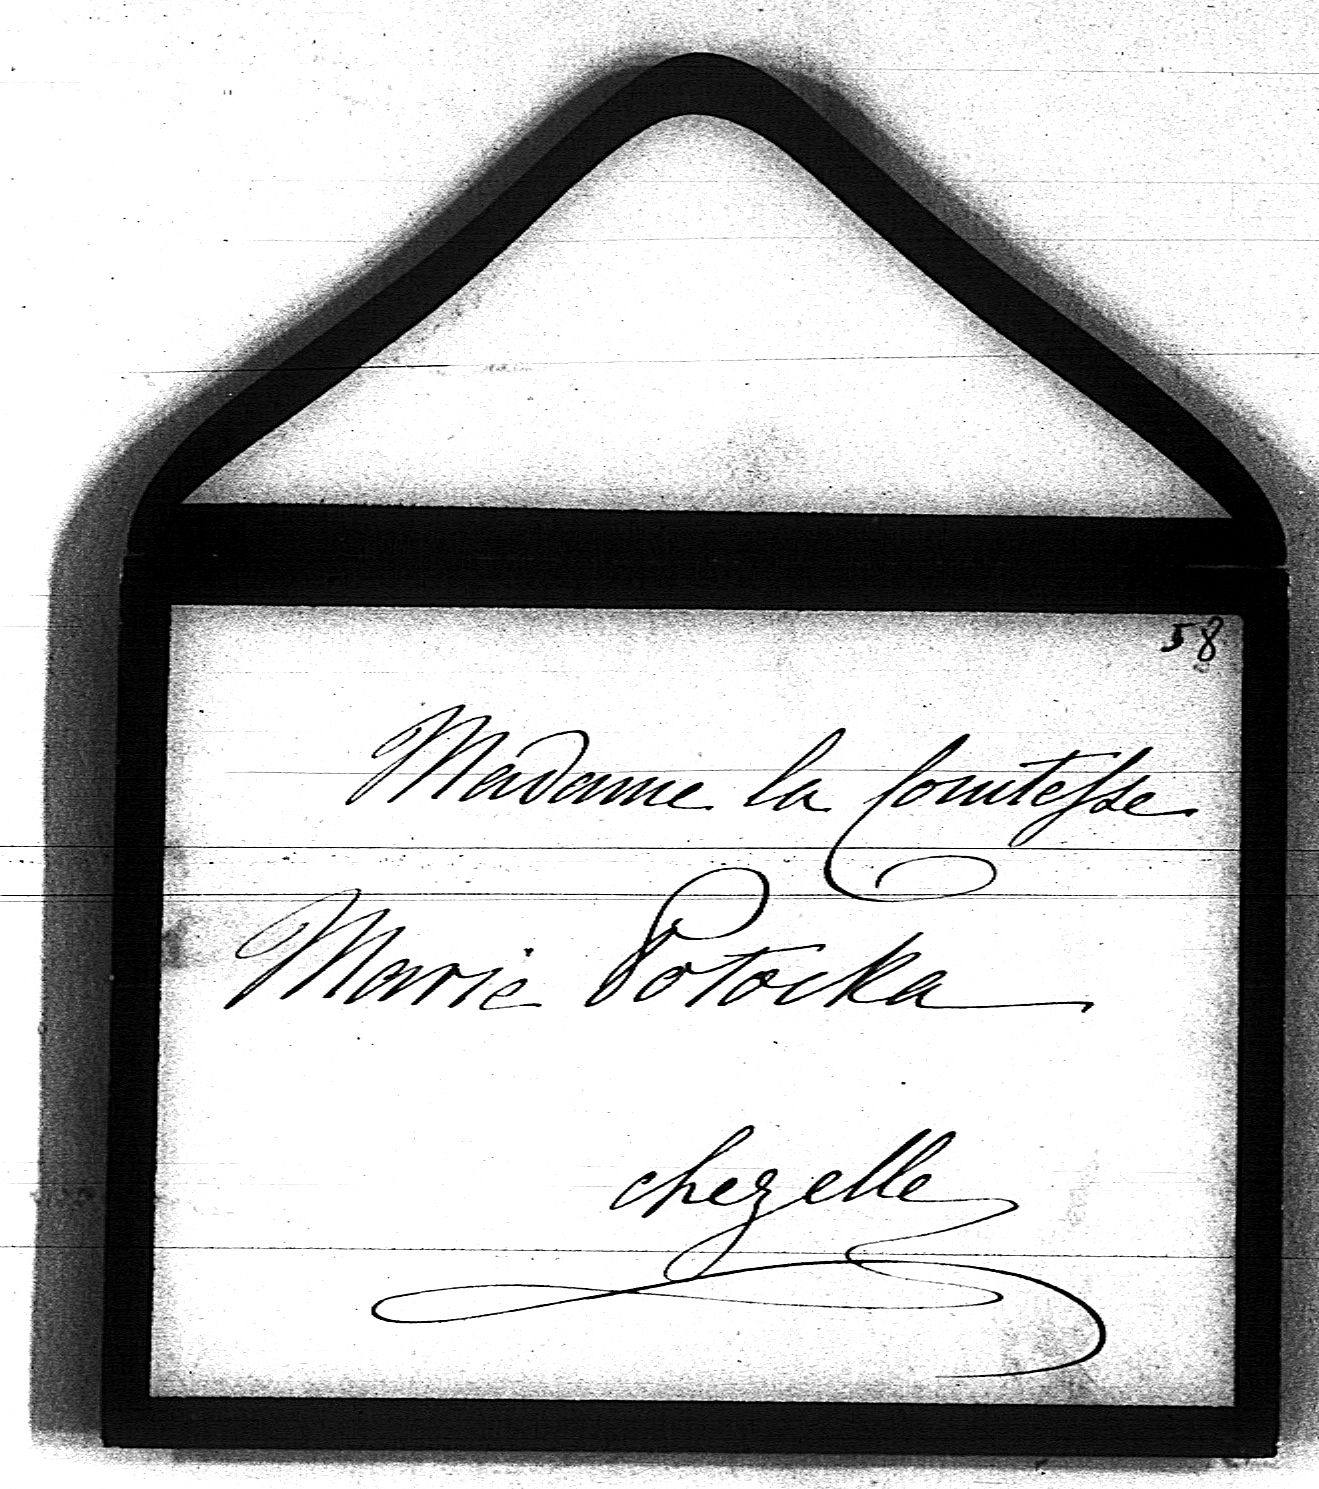 58
Madame la Comtesse
Marie Potocka
chez elle